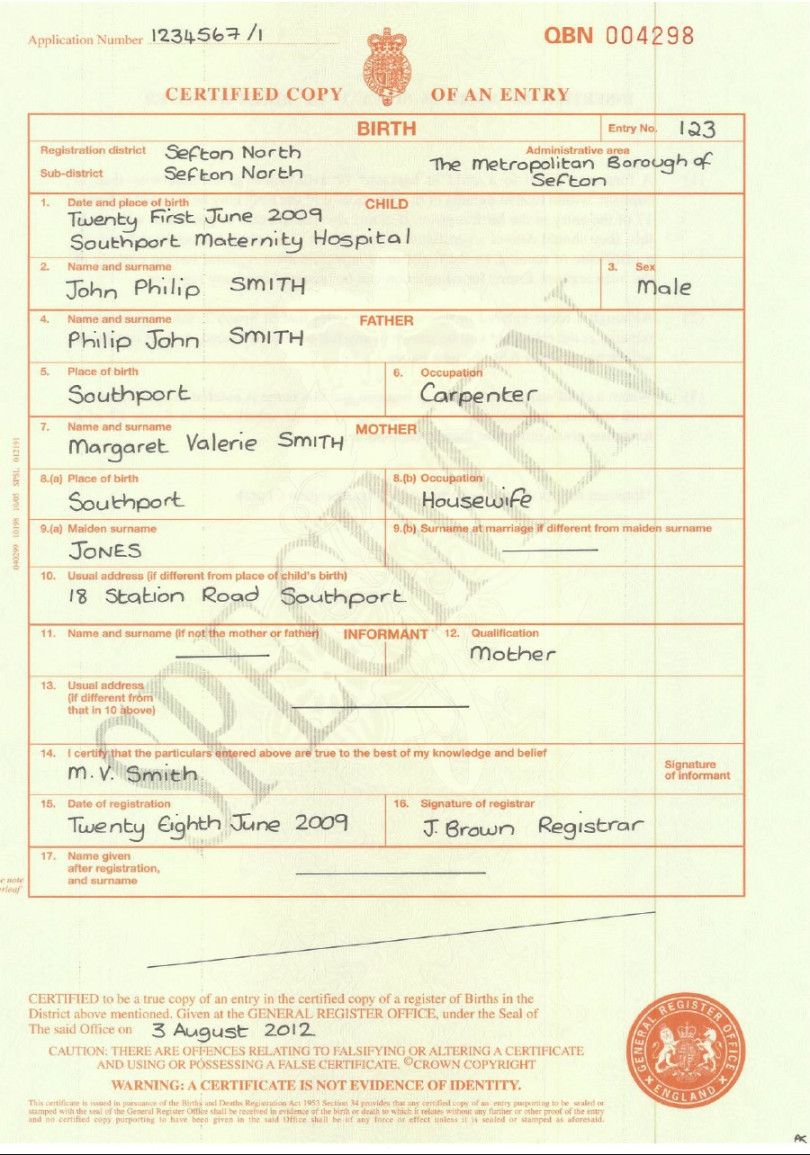 Application Number 1234567/1
QBN 004298
CERTIFIED COPY OF AN ENTRY
BIRTH
Entry No. 123
Registration district Sefton North
Sub-district Sefton North
Administrative area
The Metropolitan Borough of
Sefton
1. Date and place of birth CHILD
Twenty First June 2009
Southport Maternity Hospital
2. Name and surname
John Philip SMITH
3. Sex
Male
4. Name and surname FATHER
Philip John SMITH
5. Place of birth
Southport
6. Occupation
Carpenter
7. Name and surname MOTHER
Margaret Valerie SMITH
8.(a) Place of birth
Southport
8.(b) Occupation
Housewife
9.(a) Maiden surname
JONES
9.(b) Surname at marriage if different from maiden surname
10. Usual address (if different from place of child's birth)
18 Station Road Southport
11. Name and surname (if not the mother or father) INFORMANT
12. Qualification
Mother
13. Usual address
(if different from
that in 10 above)
14. I certify that the particulars entered above are true to the best of my knowledge and belief
M. V. Smith
Signature
of informant
15. Date of registration
Twenty Eighth June 2009
16. Signature of registrar
J. Brown Registrar
17. Name given
after registration,
and surname
SPECIMEN
040299 10198 10/05 SPSL 012191
note
CERTIFIED to be a true copy of an entry in the certified copy of a register of Births in the
District above mentioned. Given at the GENERAL REGISTER OFFICE, under the Seal of
The said Office on 3 August 2012
CAUTION: THERE ARE OFFENCES RELATING TO FALSIFYING OR ALTERING A CERTIFICATE
AND USING OR POSSESSING A FALSE CERTIFICATE. ©CROWN COPYRIGHT
WARNING: A CERTIFICATE IS NOT EVIDENCE OF IDENTITY.
This certificate is issued in pursuance of the Births and Deaths Registration Act 1953 Section 34 provides that any certified copy of an entry purporting to be sealed or
stamped with the seal of the General Register Office shall be received in evidence of the birth or death to which it relates without any further or other proof of the entry
and no certified copy purporting to have been given in the said Office shall be of any force or effect unless it is sealed or stamped as aforesaid.
GENERAL REGISTER OFFICE
ENGLAND